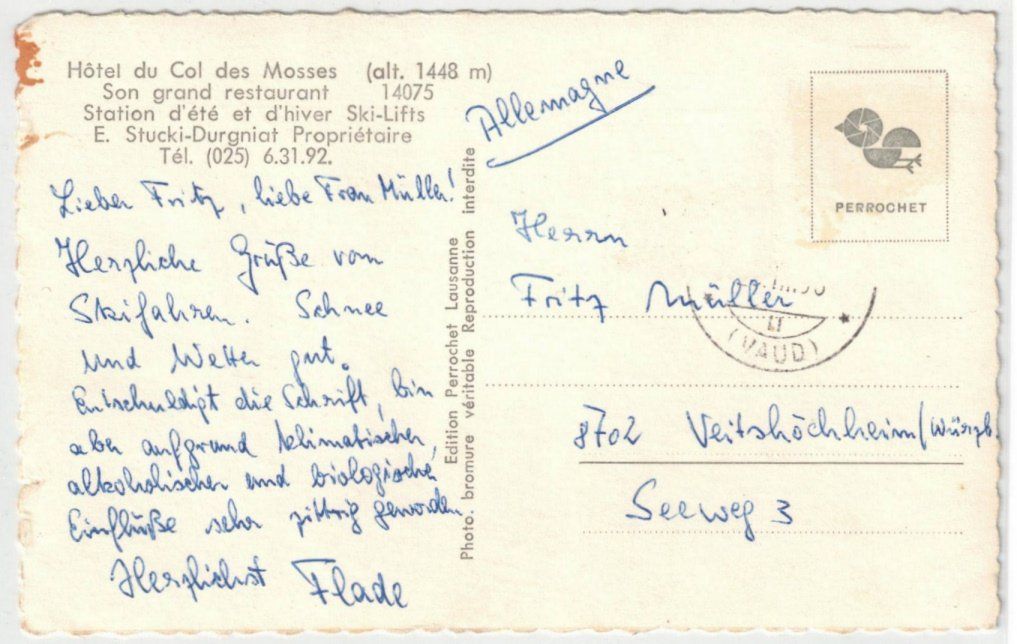 Hôtel du Col des Mosses (alt. 1448 m)
Son grand restaurant 14075
Station d'été et d'hiver Ski-Lifts
E. Stucki-Durgniat Propriétaire
Tél. (025) 6.31.92.
Lieber Fritz, liebe Frau Müller!
Herzliche Grüße vom
Skifahren. Schnee
und Wetter gut.
Entschuldigt die Schrift, bin
aber aufgrund klimatischer,
alkoholischer und biologischer
Einflüße sehr zittrig geworden
Herzlichst Flade
Edition Perrochet Lausanne
Photo. bromure véritable Reproduction interdite
Allemagne
PERROCHET
Herrn
Fritz Müller
(VAUD)
8702 Veitshöchheim/Würzb.
Seeweg 3